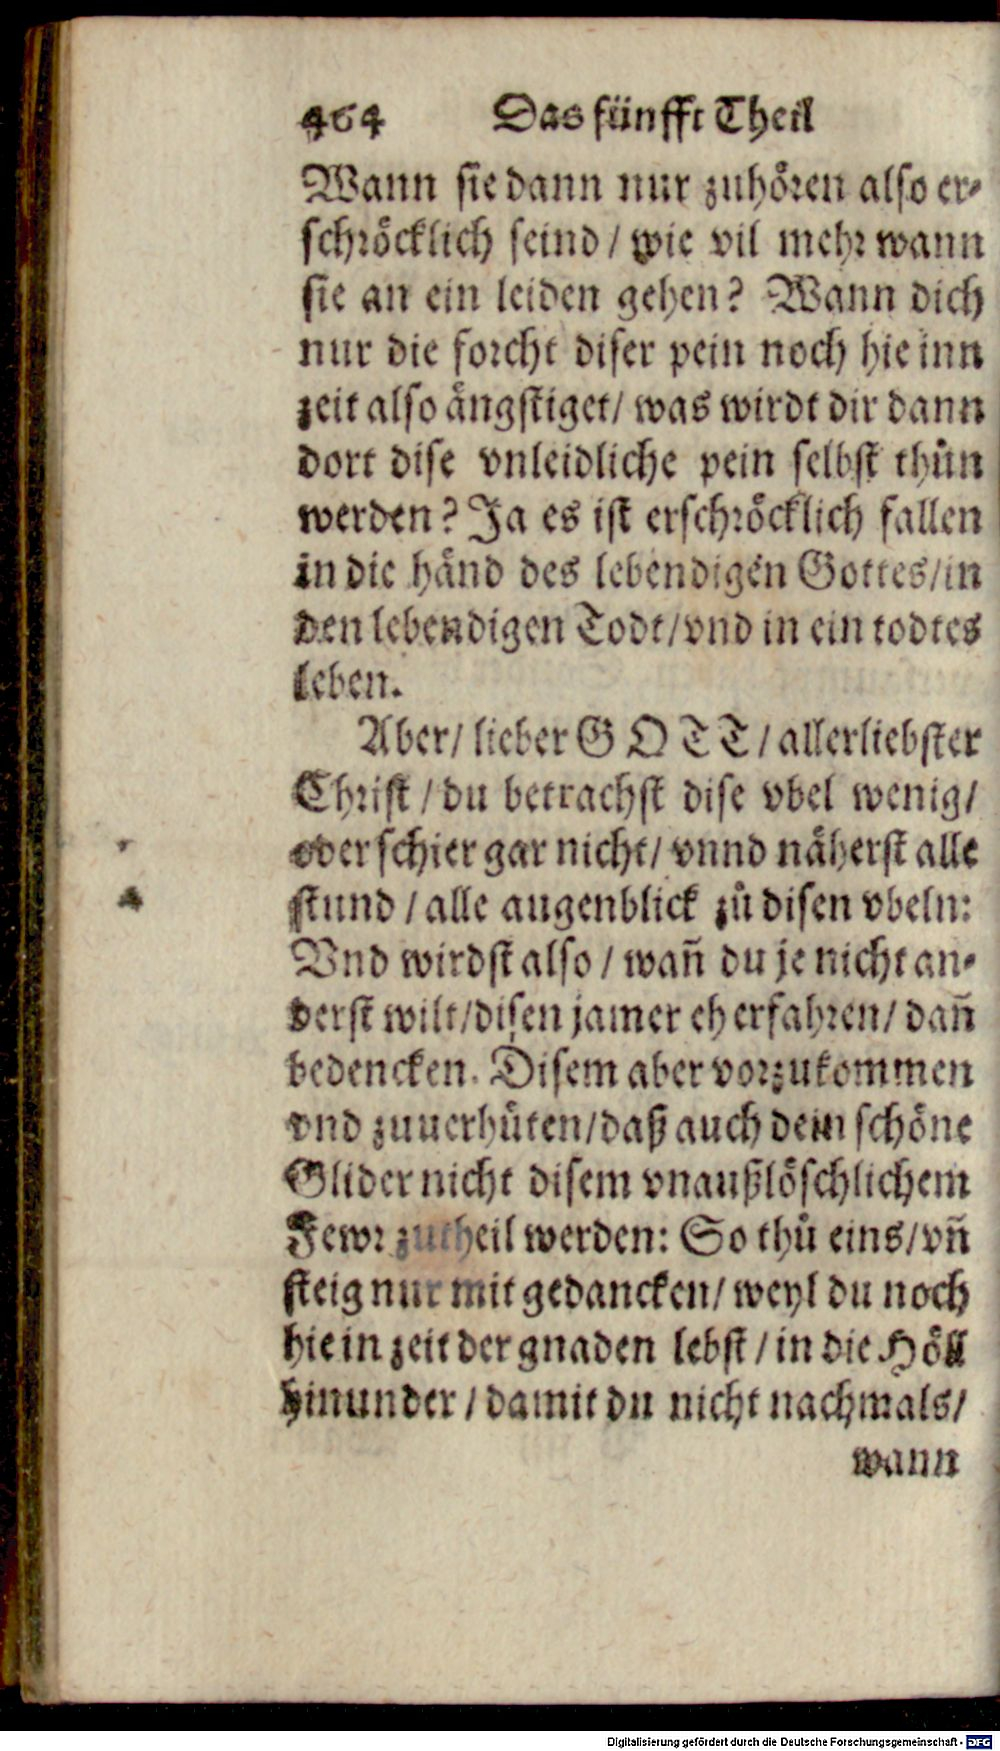 464 Das fünfft Theil
Wann sie dann nur zuhören also er-
schröcklich seind / wie vil mehr wann
sie an ein leiden gehen? Wann dich
nur die forcht diser pein noch hie inn
zeit also ängstiget / was wirdt dir dann
dort dise vnleidliche pein selbst thůn
werden? Ja es ist erschröcklich fallen
in die händ des lebendigen Gottes / in
den lebendigen Todt / vnd in ein todtes
leben.
Aber / lieber GOTT / allerliebster
Christ / du betrachst dise vbel wenig /
oder schier gar nicht / vnnd näherst alle
stund / alle augenblick zů disen vbeln:
Vnd wirdst also / wañ du je nicht an-
derst wilt / disen jamer eh erfahren / dañ
bedencken. Disem aber vorzukommen
vnd zuuerhüten / daß auch dein schöne
Glider nicht disem vnaußlöschlichem
Fewr zutheil werden: So thů eins / vñ
steig nur mit gedancken / weyl du noch
hie in zeit der gnaden lebst / in die Höll
hinunder / damit du nicht nachmals /
wann
Digitalisierung gefördert durch die Deutsche Forschungsgemeinschaft - DFG